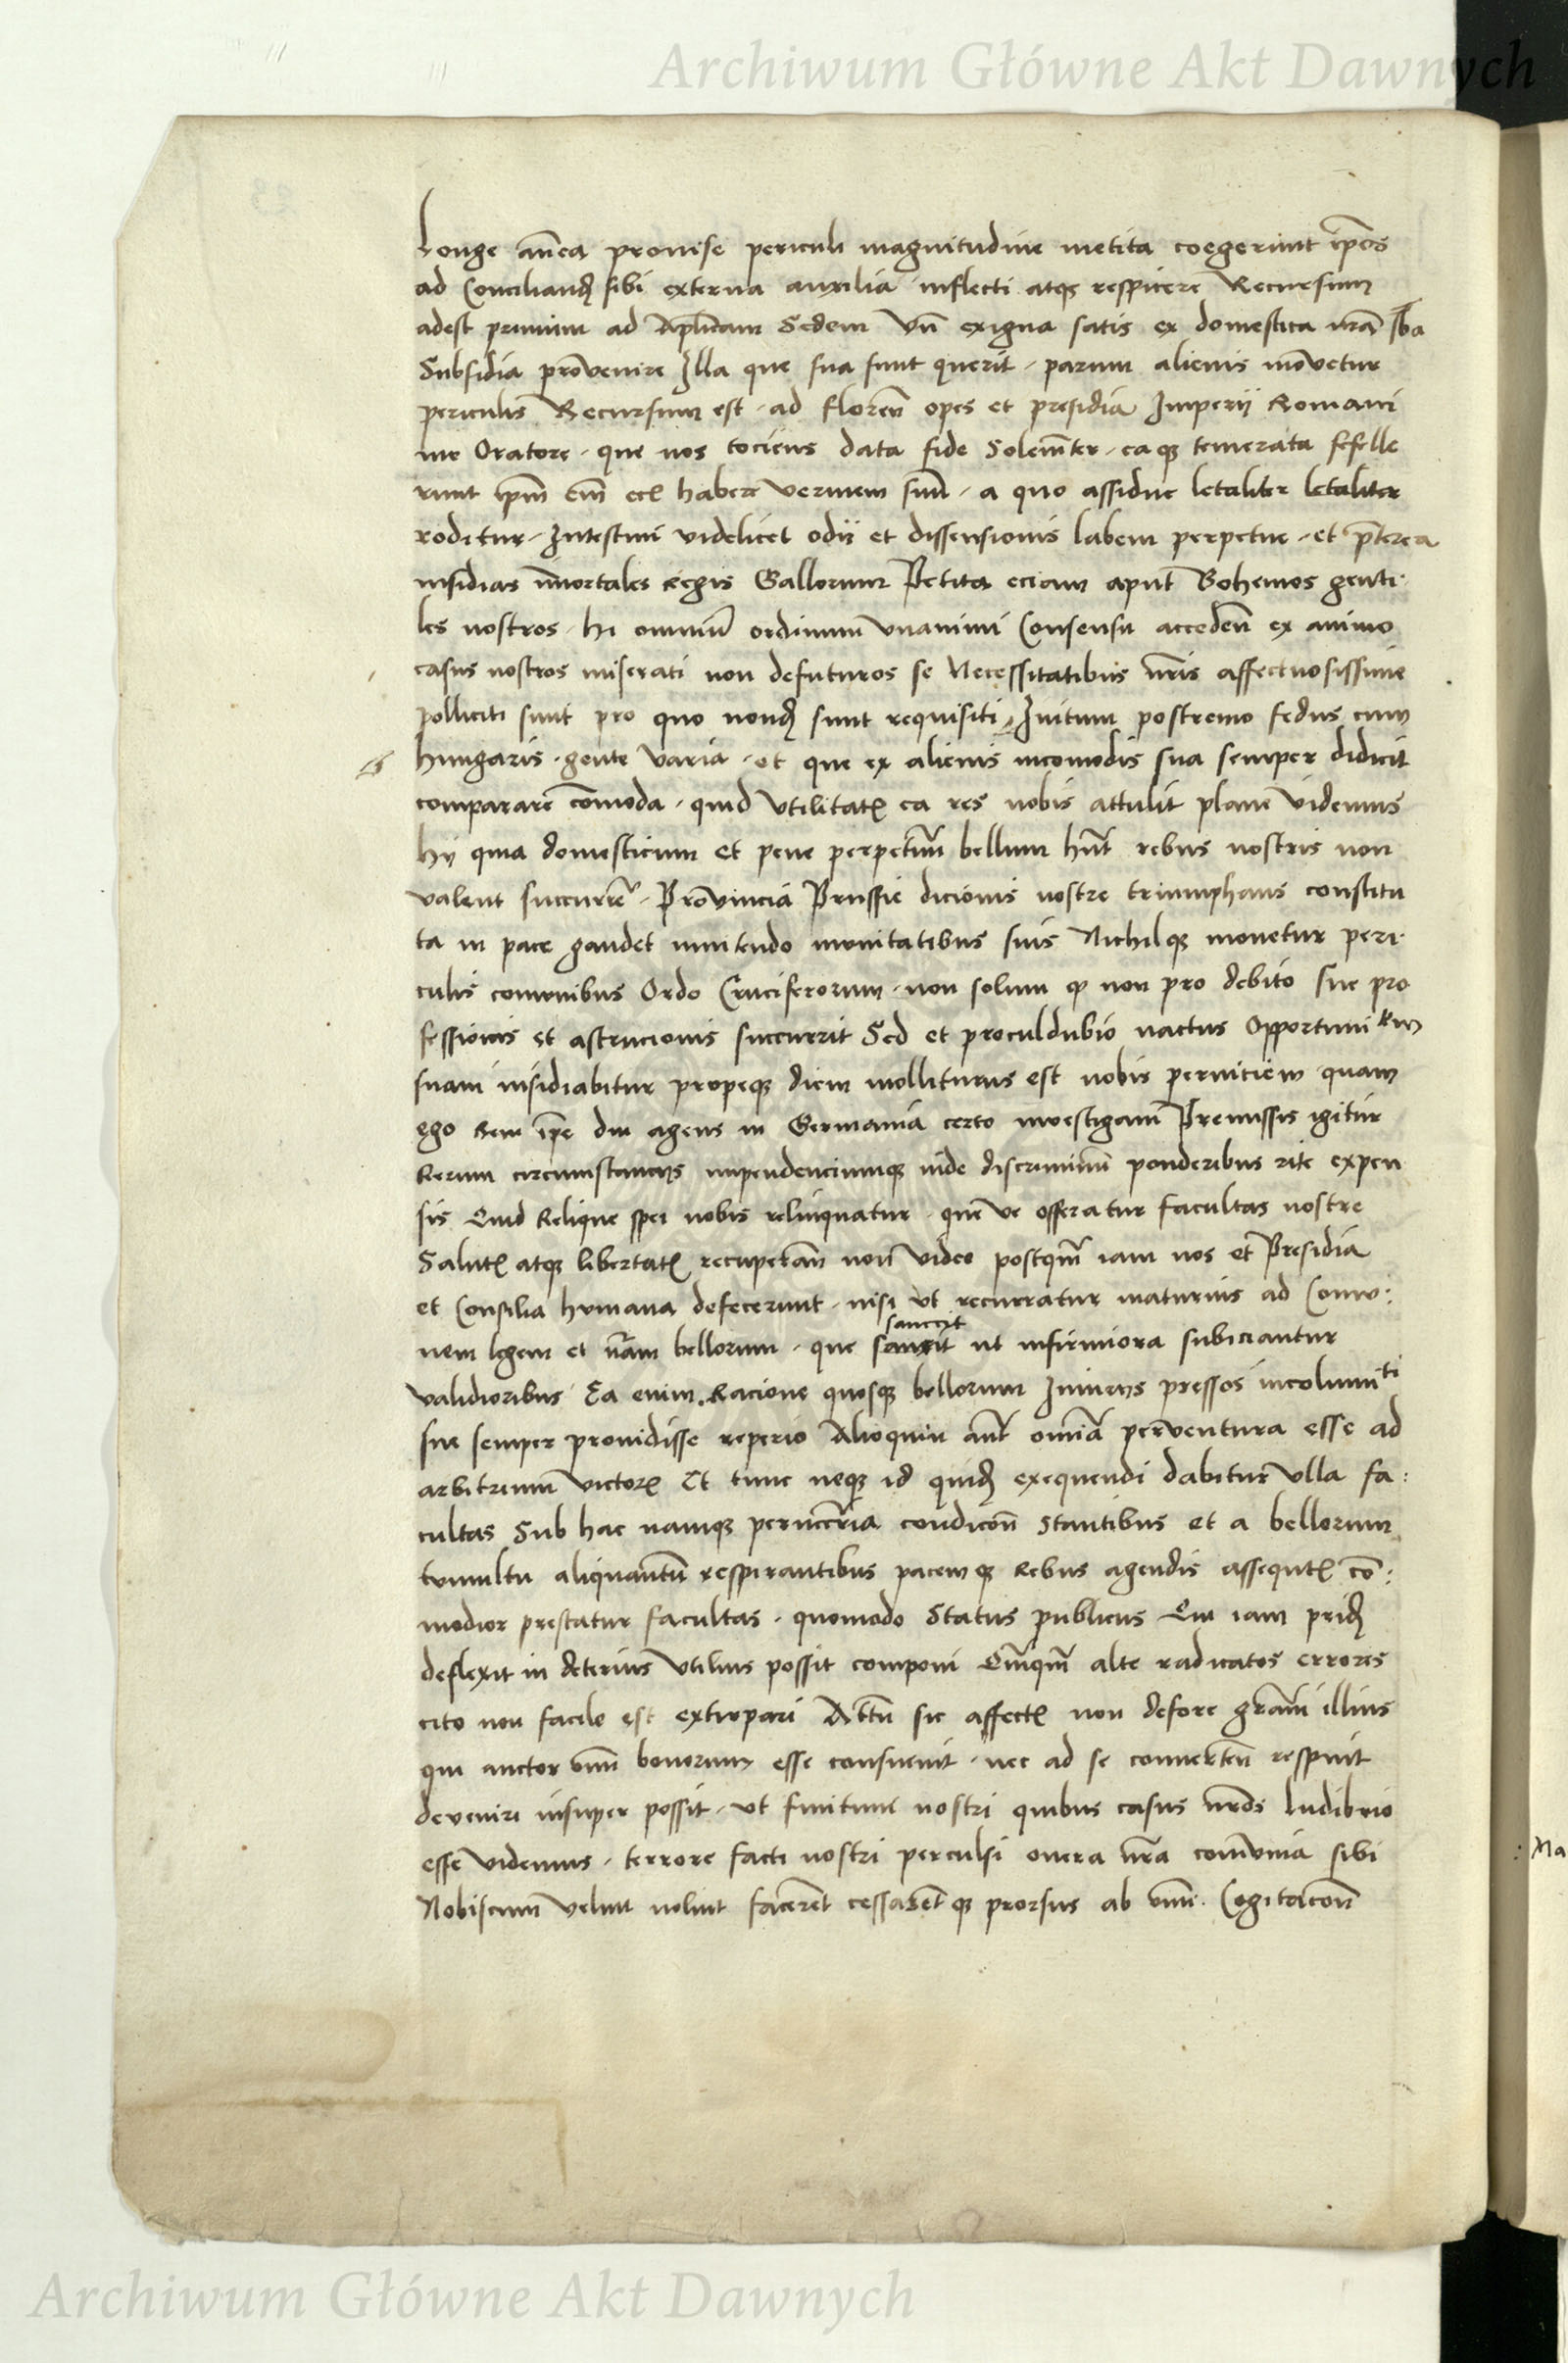 Archiwum Główne Akt Dawnych
Longe añea prouise periculi magnitudine metita coegerunt ip̃os
ad Conciliand sibi externa auxilia inflecti atq respicere Recursum
adest primum ad Apl̃icam Sedem Vñ exigua satis ex domestica nr̃a
Subsidia prouenire Illa que sua sunt querit parum alienis mouetur
periculis Recursum est ad floreñ opes et presidia Imperij Romani
me Oratore que nos tociens data fide Solem̃ter eaq temerata fefelle
runt ip̃m habere vermem suũ a quo assidue letaliter letaliter
roditur Intestini videlicet odij et dissensionis labem perpetue et pr̃terea
insidias im̃ortales Regis Gallorum Petita eciam aput Bohemos genti
les nostros hi omniũ ordinum vnanimi Consensu accedeñ ex animo
casus nostros miserati non defuturos se Necessitatibus nr̃is affectuosissime
polliciti sunt pro quo nond sunt requisiti Initum postremo fedus cum
hungaris gente varia et que ex alienis incomodis sua semper didicit
comparare com̃oda quid vtilitat ea res nobis attulit plane videmus
hij quia domesticum et pene perpetuũ bellum hñt rebus nostris non
valent succurrer̃ Prouincia Prussie dicionis nostre triumphans constitu
ta in pace gaudet nitendo imunitatibus suis Nichilq mouetur peri
culis comunibus Ordo Cruciferorum non solum q non pro debito sue pro
fessionis et astrictionis succurrit Sed et proculdubio nactus Opportunitem
suam insidiabitur propeq diem molliturus est nobis perniciem quam
ego Rem ip̃e diu agens in Germania certo inuestigaui Premissis igitur
Rerum circumstancijs impendenciumq inde discriminũ ponderibus rite expen
sis Quid Relique spei nobis relinquatur que ve offeratur facultas nostre
Salut atq libertat recuperañ non video postqm̃ iam nos et Presidia
et Consilia humana defecerunt nisi vt recurratur maturius ad Comu:
sanccit
nem legem et nr̃am bellorum que sancit ut infirmiora subiciantur
validioribus Ea enim Racione quosq bellorum Iniurijs pressos incolumiti
sue semper prouidisse reperio Alioquin añt om̃ia peruentura esse ad
arbitrium victor Et tunc neq id quid exequendi dabitur vlla fa:
cultas Sub hac namq condicoñ stantibus et a bellorum
tumultu aliquantũ respirantibus pacemq Rebus agendis assequut com̃:
modior prestatur facultas quomodo Status publicus Qui iam prid
deflexit in deterius vtilius possit componi Qm̃qm̃ alte radicatos errores
cito non facile est extirpari Attñ sic affect non defore gr̃am illius
qui auctor om̃ bonorum esse consueuit nec ad se conuerteñ respuit
deveniri insuper possit vt finitimi nostri quibus casus nr̃os ludibrio
esse videmus terrore facti nostri perculsi onera nr̃a com̃unia sibi
Nobiscum velint nolint facerent cessarentq prorsus ab om̃i Cogitacoñ
Archiwum Główne Akt Dawnych